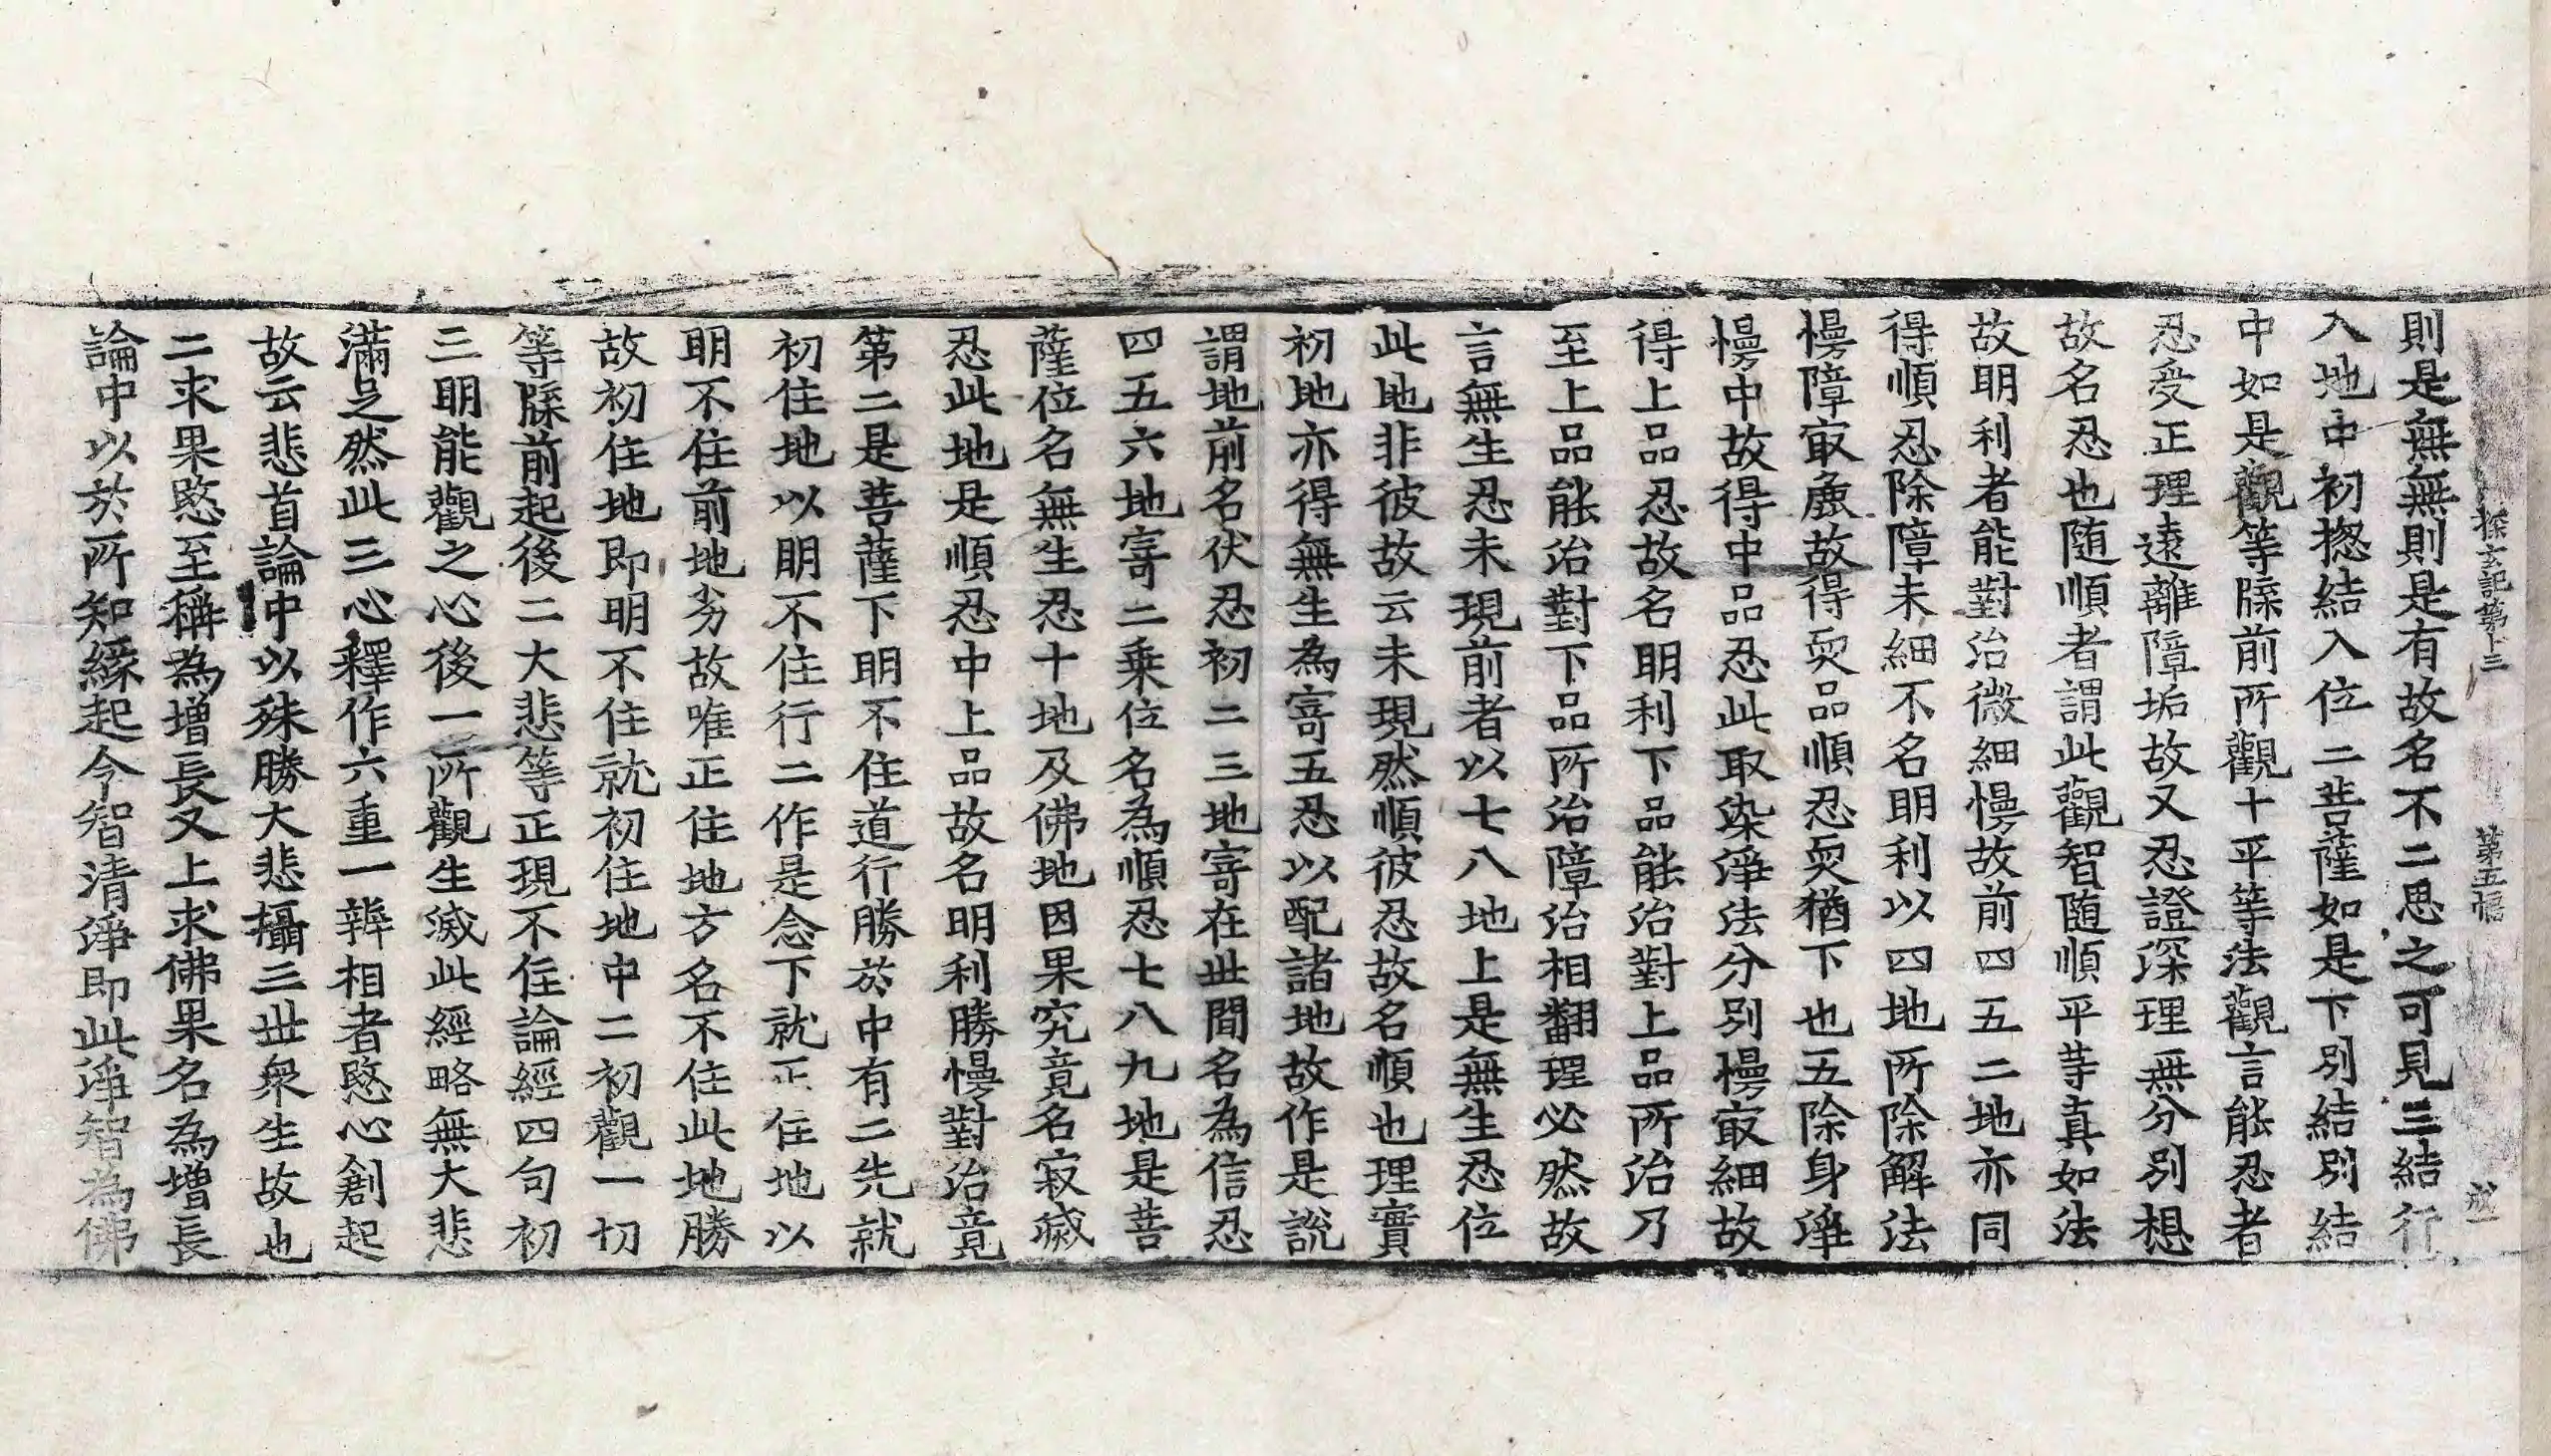 探玄記第十三 第五幅
則是無無則是有故名不二思之可見三結行
入地中初揔結入位二菩薩如是下別結別結
中如是觀等牒前所觀十平等法觀言能忍者
忍受正理遠離障垢故又忍證深理無分別想
故名忍也随順者謂此觀智随順平等真如法
故明利者能對治微細慢故前四五二地亦同
得順忍除障未細不名明利以四地所除解法
慢障㝡麁故得耎品順忍耎猶下也五除身淨
慢中故得中品忍此取染淨法分別慢㝡細故
得上品忍故名明利下品能治對上品所治乃
至上品能治對下品所治障治相翻理必然故
言無生忍未現前者以七八地上是無生忍位
此地非彼故云未現然順彼忍故名順也理實
初地亦得無生為寄五忍以配諸地故作是說
謂地前名伏忍初二三地寄在世間名為信忍
四五六地寄二乗位名為順忍七八九地是菩
薩位名無生忍十地及佛地因果究竟名寂滅
忍此地是順忍中上品故名明利勝慢對治竟
第二是菩薩下明不住道行勝於中有二先就
初住地以明不住行二作是念下就正住地以
明不住前地劣故唯正住地方名不住此地勝
故初住地即明不住就初住地中二初觀一切
等牒前起後二大悲等正現不住論經四句初
三明能觀之心後一所觀生滅此經略無大悲
滿足然此三心釋作六重一辨相者愍心創起
故云悲首論中以殊勝大悲攝三世衆生故也
二求果愍至稱為增長又上求佛果名為增長
論中以於所知緣起令智清淨即此淨智為佛